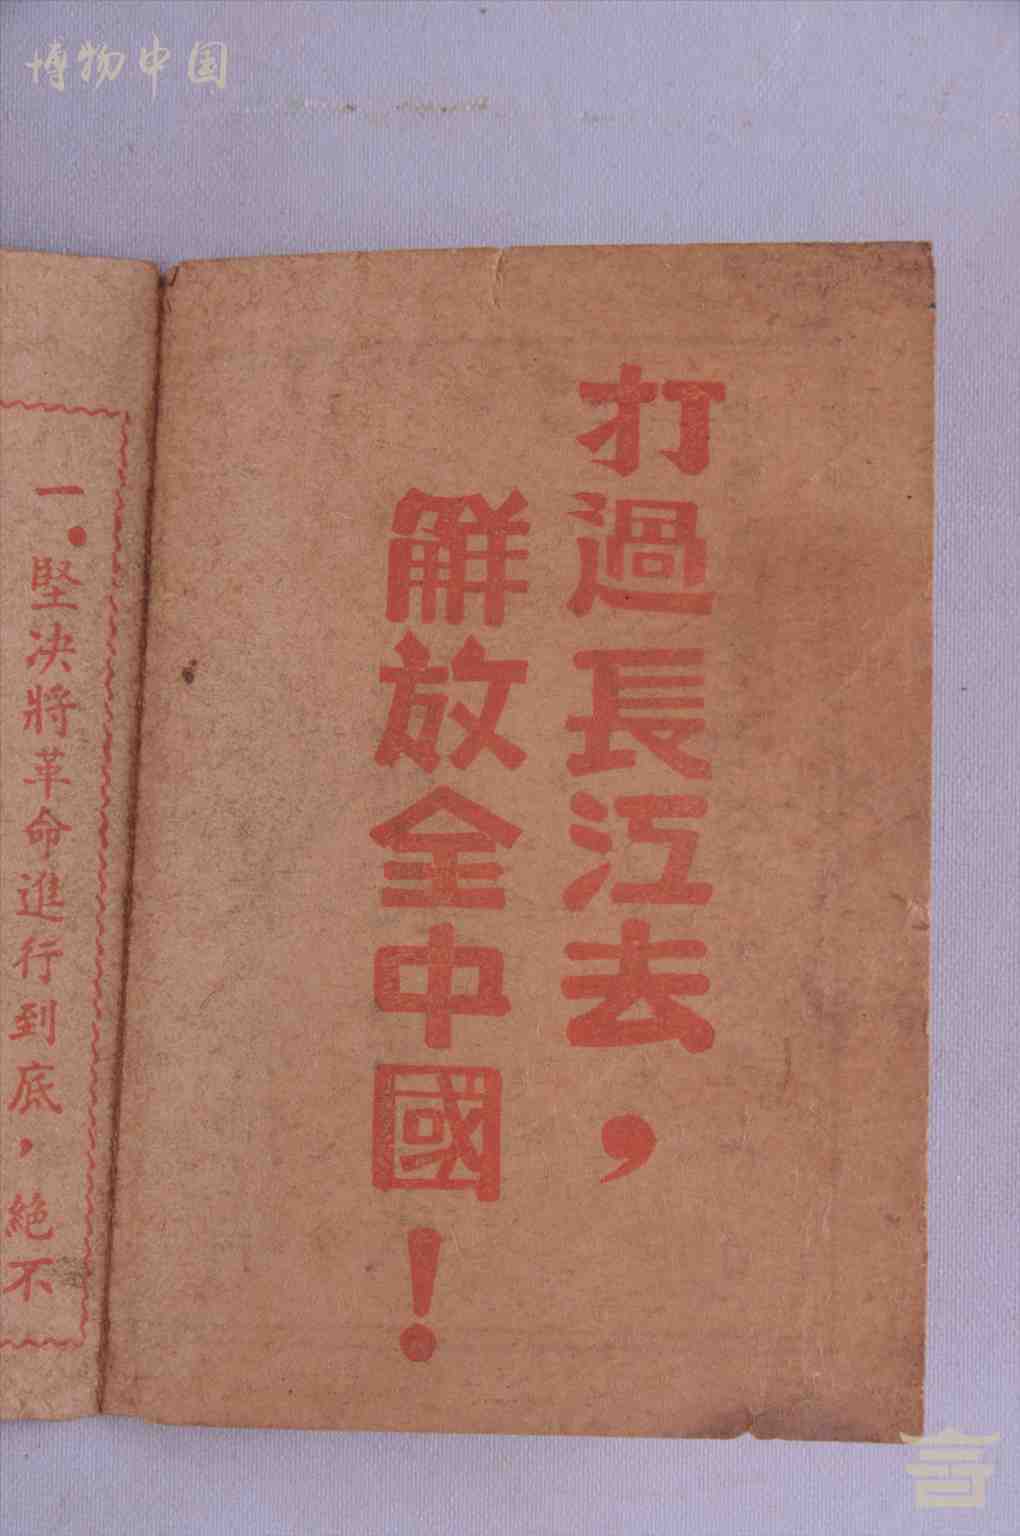 博物中国
打過長江去，
解放全中國！
一．堅决將革命進行到底，絕不